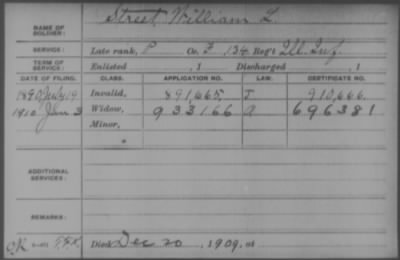 NAME OF SOLDIER: Street, William L.
SERVICE: Late rank, P Co. F, 134 Reg't Ill. Inf.
TERM OF SERVICE: Enlisted , 1 Discharged , 1
DATE OF FILING. CLASS. APPLICATION NO. LAW. CERTIFICATE NO.
1890 July 19 Invalid, 891,665, J 910,666.
1910 Jan 3 Widow, 933166 a 696381
Minor,
ADDITIONAL SERVICES:
REMARKS:
Died Dec 20, 1909, at